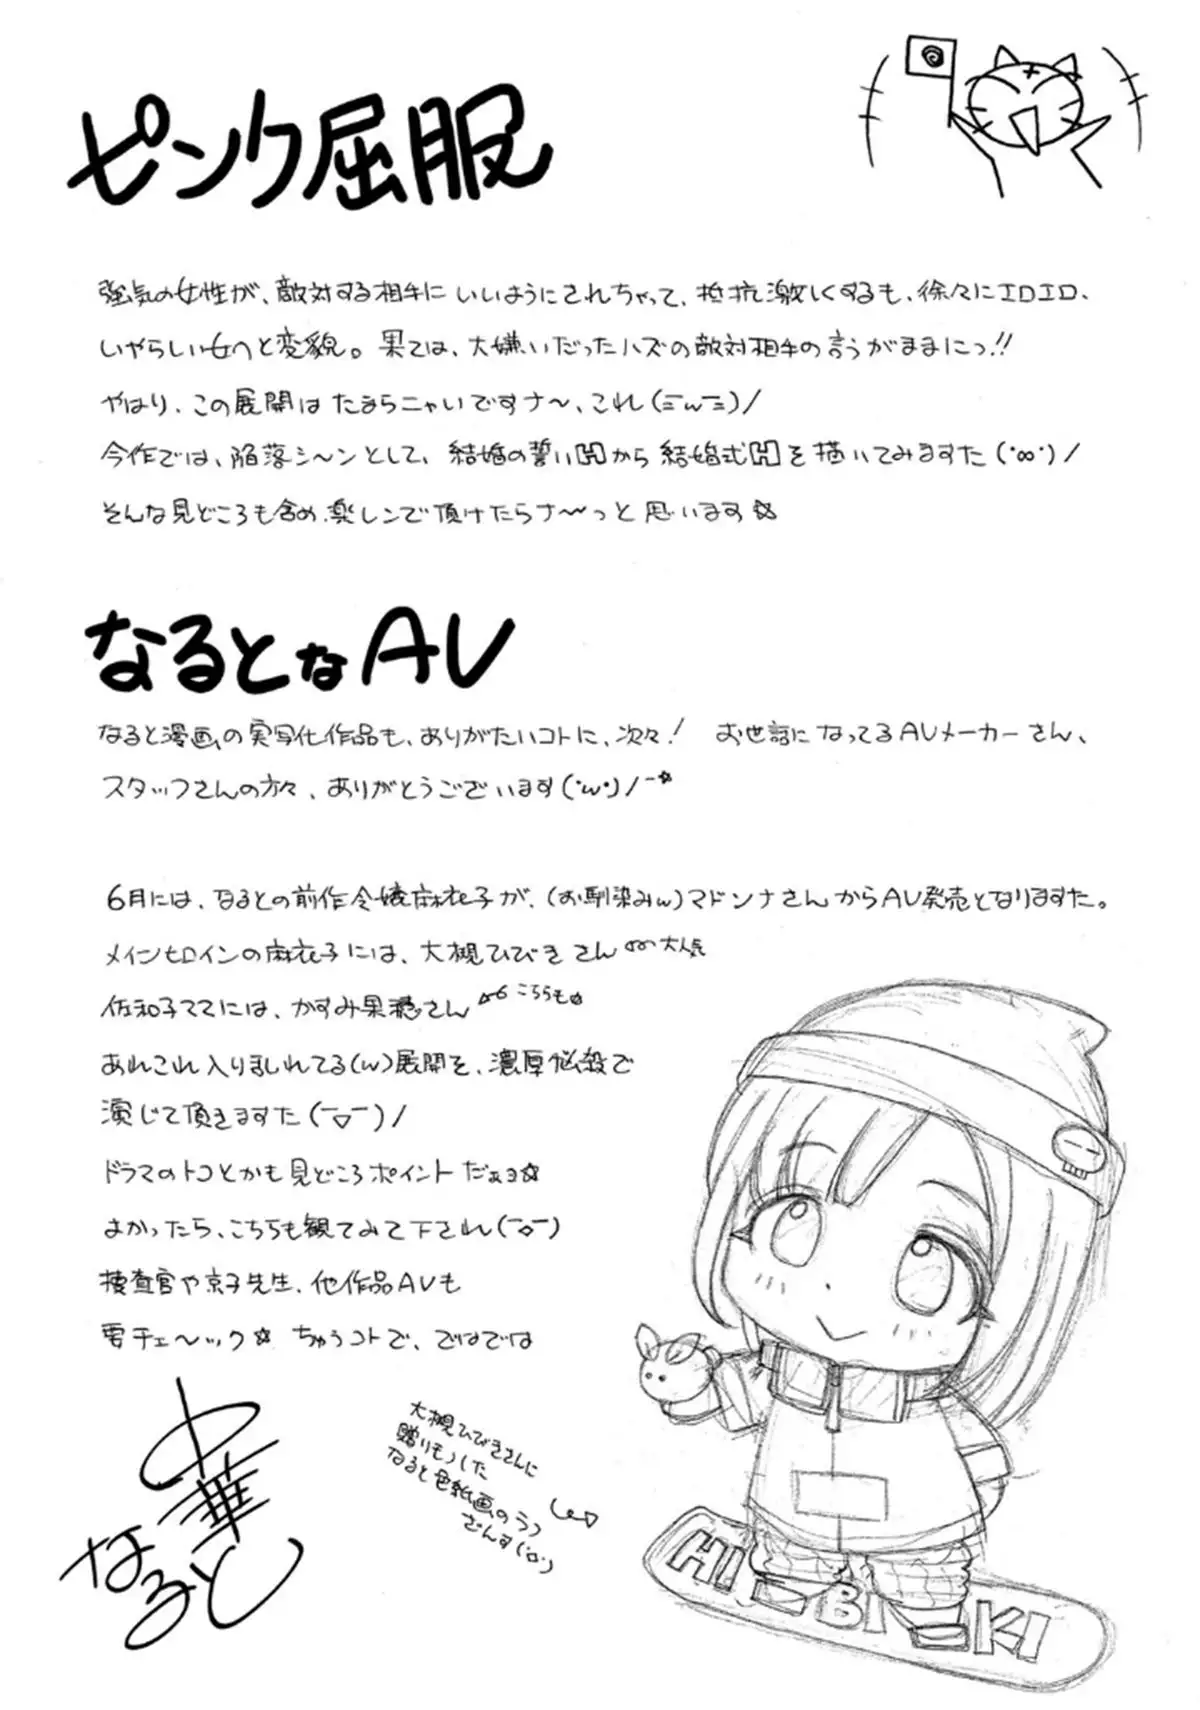 ピンク屈服
強気の女性が、敵対する相手にいいようにされちゃって、抵抗激しくするも、徐々にエロエロ、
いやらしい女へと変貌。果ては、大嫌いだったハズの敵対相手の言うがままにっ!!
やはり、この展開はたまらニャいですナ〜、これ(ΞwΞ)/
今作では、陥落シ〜ンとして、結婚の誓いHから結婚式Hを描いてみますた(・∞・)/
そんな見どころも含め、楽しンで頂けたらナ〜っと思います☆
なるとなAV
なると漫画の実写化作品も、ありがたいコトに、次々! お世話になってるAVメーカーさん、
スタッフさんの方々、ありがとうございます(・w・)/ー☆
6月には、なるとの前作令嬢麻衣子が、(お馴染みw)マドンナさんからAV発売となりますた。
メインヒロインの麻衣子には、大槻ひびきさん 大人気
佐和子ママには、かすみ果穂さん こちらも☆
あれこれ入りましれてる(w)展開を、濃厚悩殺で
演じて頂きますた(￣▽￣)/
ドラマのトコとかも見どころポイントだぉョ☆
よかったら、こちらも観てみて下され(￣o￣)
捜査官や京子先生、他作品AVも
要チェ〜ック☆ ちゅうコトで、ではでは
中華
なると
大槻ひびきさんに
贈りモノした
なると色紙画のラフ
ざんす(・o・)
HIBIKI